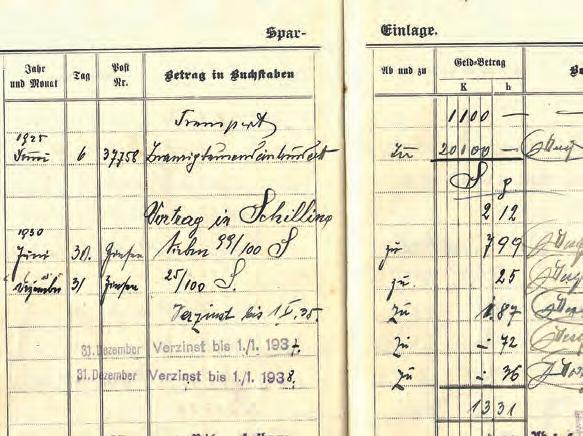 Spar- Einlage.
Jahr und Monat Tag Post Nr. Betrag in Buchstaben Ab und zu Geld-Betrag
K h
Transport 1100 —
1925
Juni 6 37758 Zwanzigtausendeinhundert zu 20100 —
S g
Vortrag in Schilling 2 12
1930
Juni 30. Zinsen sieben 99/100 S zu 7 99
Dezember 31 Zinsen 25/100 S. zu 25
Verzinst bis 1.I.35. zu 1.87
31. Dezember Verzinst bis 1./1. 1937. zu – 72
31. Dezember Verzinst bis 1./1. 1938. zu – 36
13 31